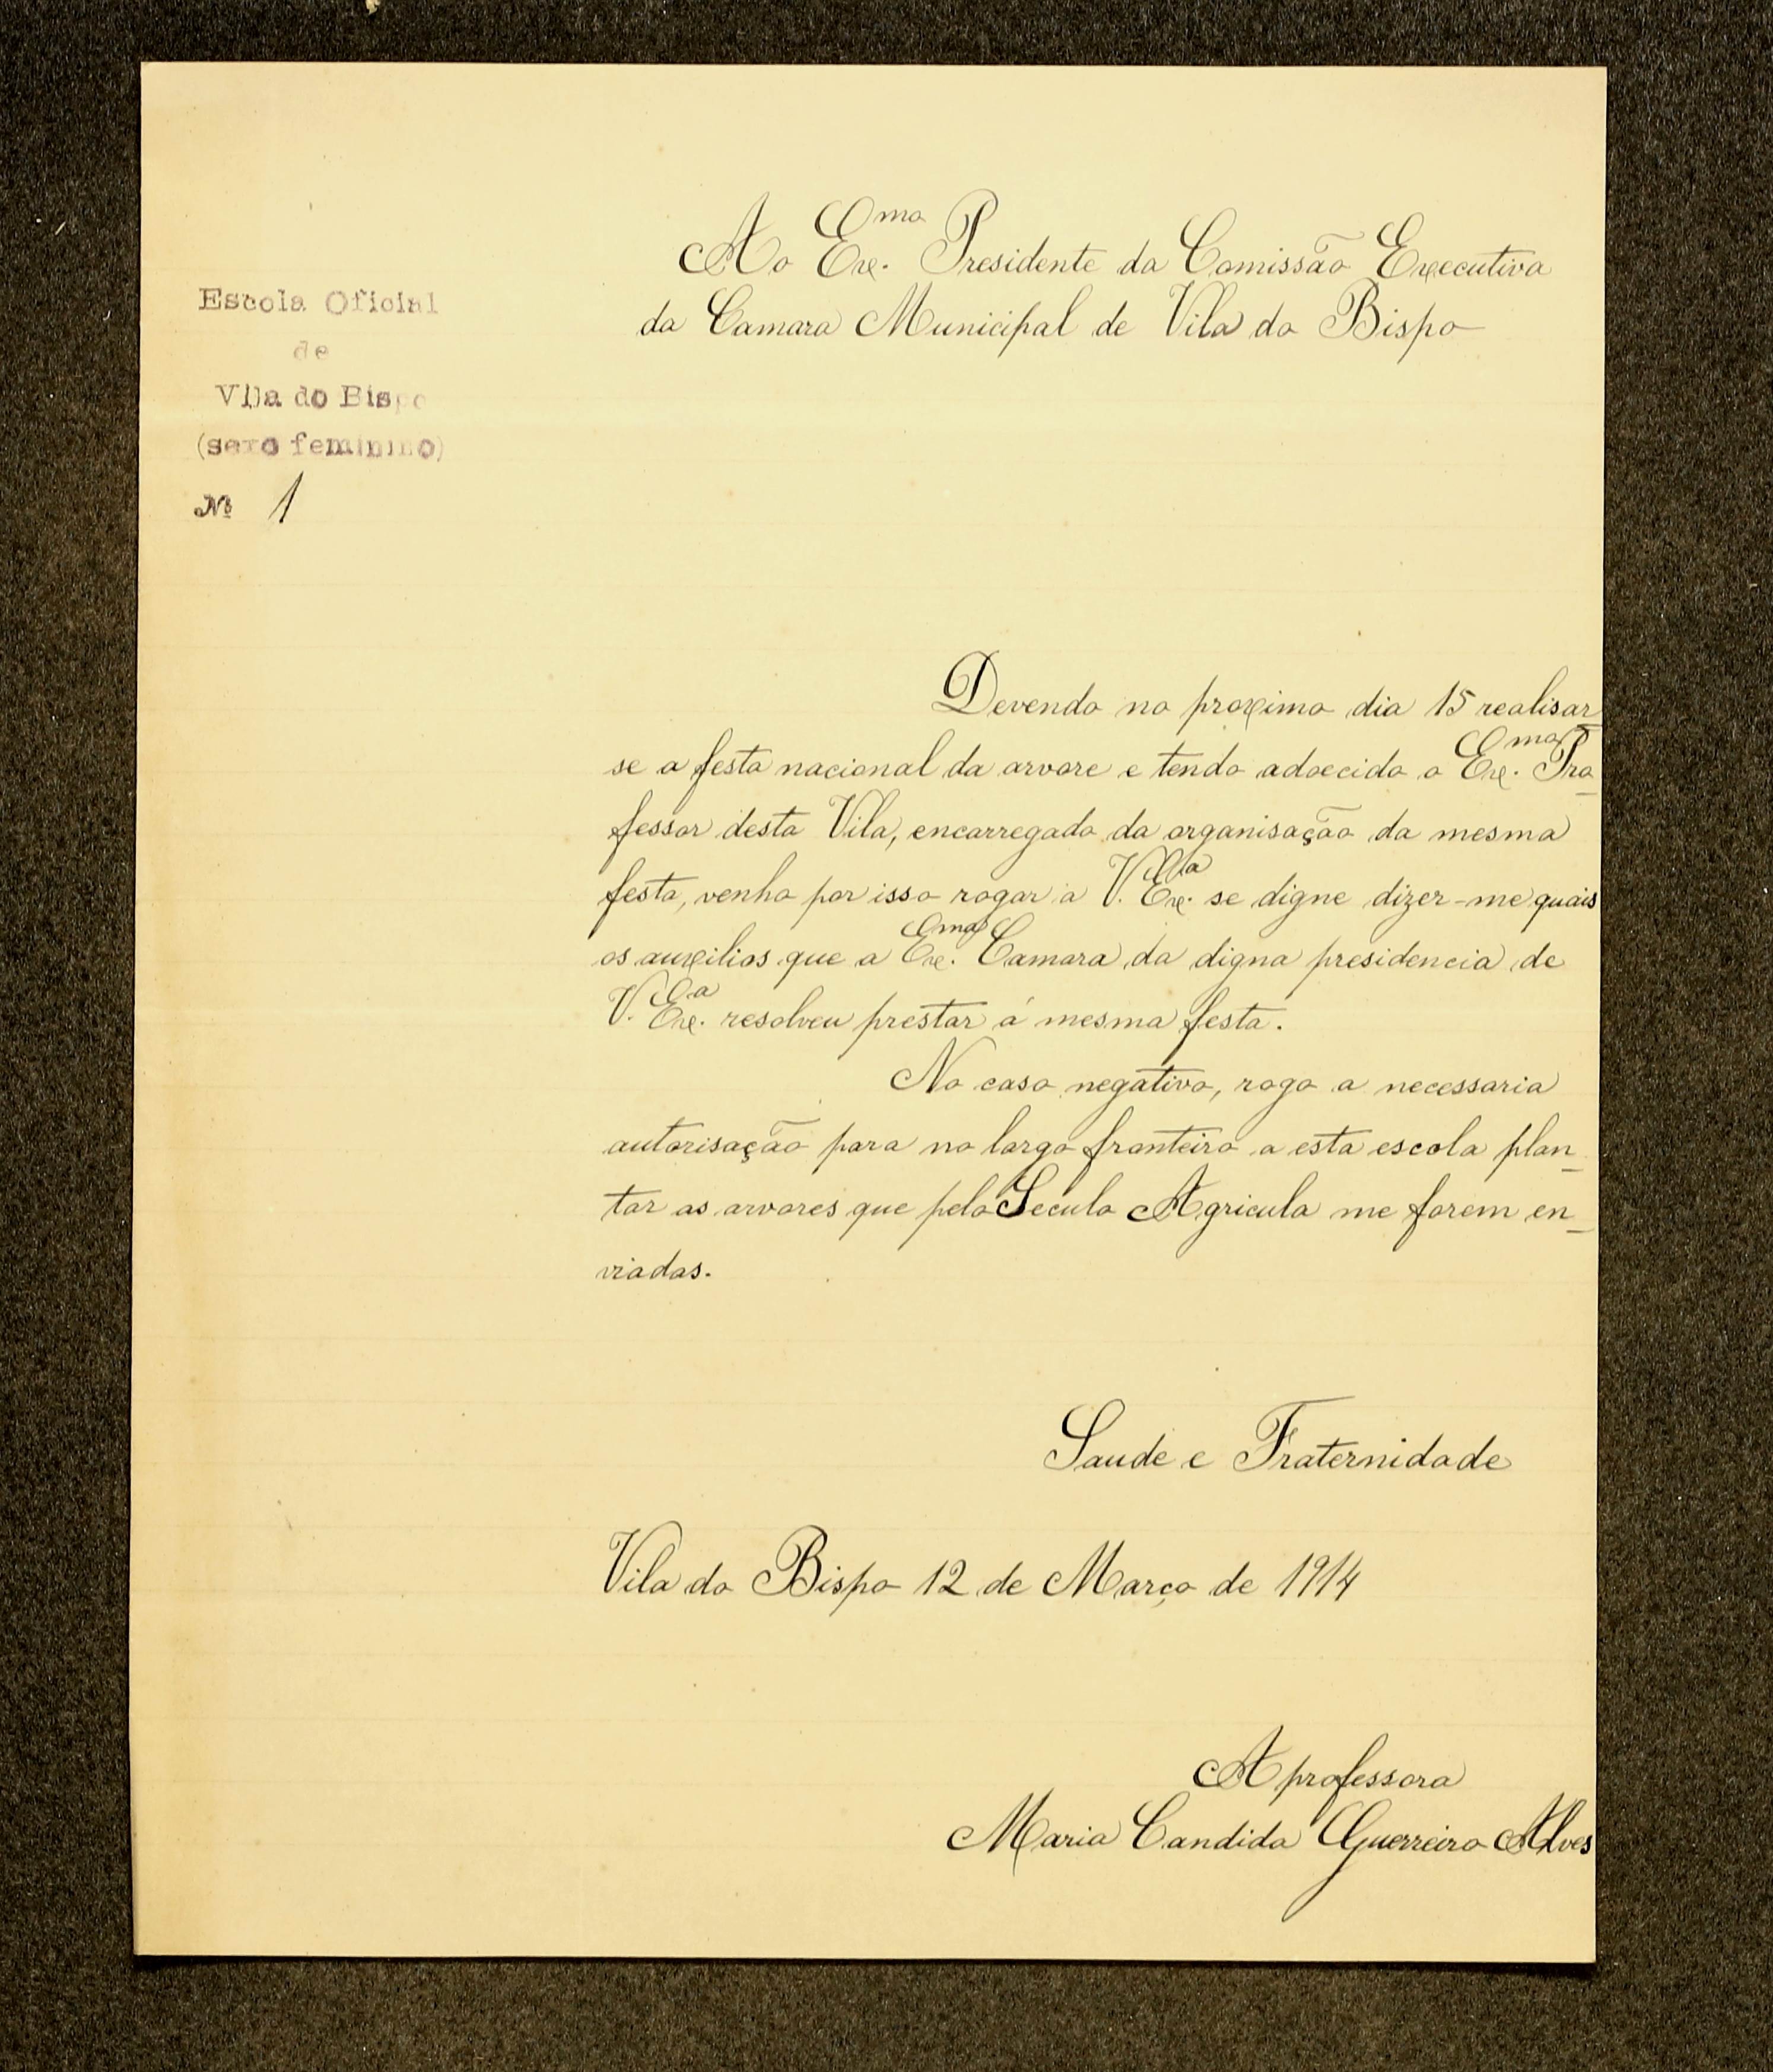 Ao Ex.mo Presidente da Comissão Executiva
da Camara Municipal de Vila do Bispo
Escola Oficial
de
Vila do Bispo
(sexo feminino)
Nº 1
Devendo no proximo dia 15 realisar-
se a festa nacional da arvore e tendo adoecido o Ex.mo Pro-
fessor desta Vila, encarregado da organisação da mesma
festa, venho por isso rogar a V. Ex.a se digne dizer-me quais
os auxilios que a Ex.ma Camara da digna presidencia de
V. Ex.a resolveu prestar á mesma festa.
No caso negativo, rogo a necessaria
autorisação para no largo fronteiro a esta escola plan-
tar as arvores que pelo Seculo Agricula me forem en-
viadas.
Saude e Fraternidade
Vila do Bispo 12 de Março de 1914
A professora
Maria Candida Guerreiro Alves